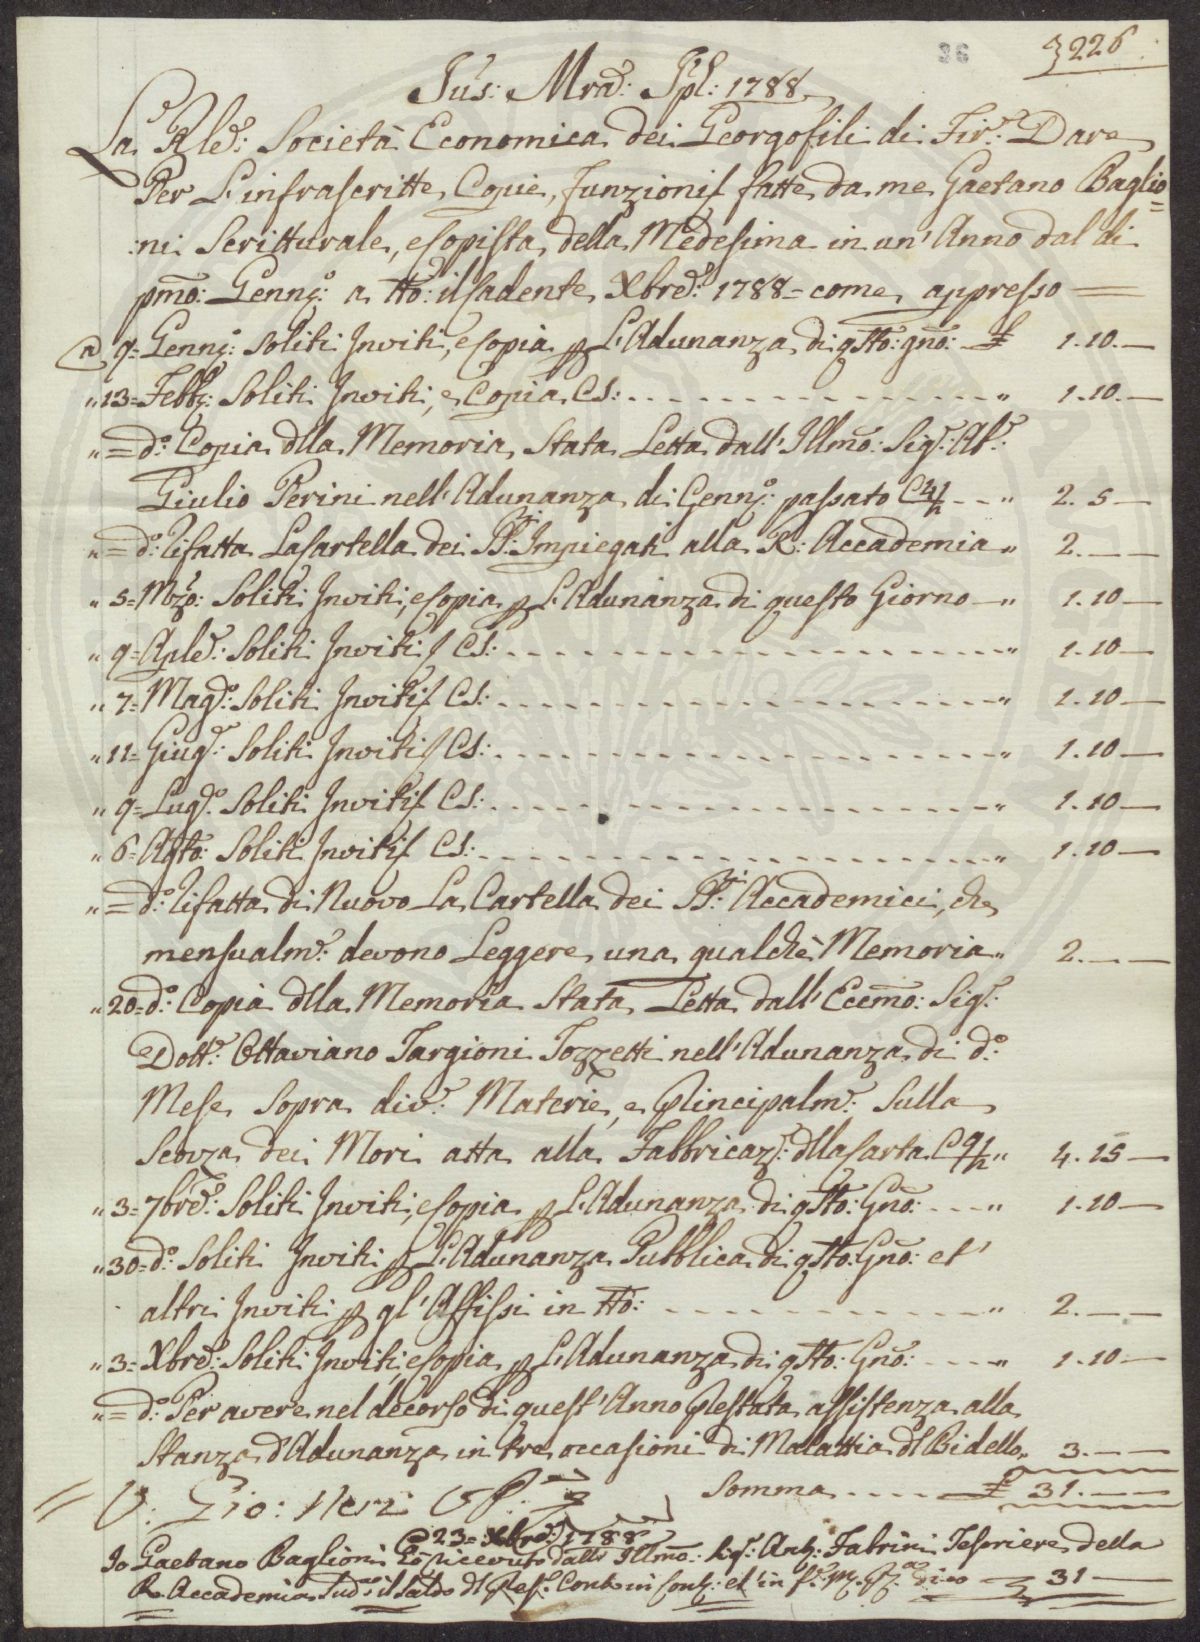 36
3226
Jus: Mrd: Spl: 1788
La Rle: Società Economica dei Georgofili di Fir.e Dare
Per L'infrascritte Copie, funzioni fatte da me Gaetano Baglio=
:ni Scritturale, e Copista della Medesima in un'Anno dal di
pmo: Genn: a tto: il cadente Xbre: 1788 = come appresso =
A 9= Genn: Soliti Inviti, e Copia p L'Adunanza di qsto: gno: £ 1.10.—
" 13= Febb: Soliti Inviti, e Copia CS: " 1.10.—
" = do: Copia dlla Memoria Stata Letta dall'Illmo: Sig: Ab:
Giulio Perini nell'Adunanza di Genn: passato C " 2. 5 —
" = do: Rifatta La Cartella dei SS:ri Impiegati alla R: Accademia " 2.— —
" 5= Mzo: Soliti Inviti, e Copia p L'Adunanza di questo Giorno — " 1.10 —
" 9= Aple: Soliti Inviti CS: " 1.10 —
" 7= Mago: Soliti Inviti CS: " 1.10 —
" 11= Giug: Soliti Inviti CS: " 1.10 —
" 9= Lugo: Soliti Inviti CS: " 1.10 —
" 6= Agto: Soliti Inviti CS: " 1.10 —
" = do: Rifatta di Nuovo La Cartella dei SS:ri Accademici, che
mensualme: devono Leggere una qualche Memoria " 2.— —
" 20= do: Copia dlla Memoria Stata Letta dall'Eccmo: Sig:
Dott: Ottaviano Targioni Tozzetti nell'Adunanza di do:
Mese sopra div: Materie, e Plincipalme: Sulla
Scorza dei Mori atta alla Fabbricaz: dlla Carta C " 4.15 —
" 3= 7bre: Soliti Inviti, e Copia p L'Adunanza di qsto: Gno: " 1.10 —
" 30= do: Soliti Inviti p L'Adunanza Pubblica di qsto: Gno: et'
altri Inviti p gl'Affissi in tto: " 2.— —
" 3= Xbre: Soliti Inviti, e Copia p L'Adunanza di qsto: Gno: " 1.10 —
" = do: Per avere nel decorso di quest'Anno Plestata assistenza alla
Stanza d'Adunanza in tre occasioni di Malattia dl Bidello " 3.— —
V: Gio: Neri Somma £ 31.— —
23= Xbre: 1788
Io Gaetano Baglioni ò ricevuto dallo Illmo: Sig: Ant: Fabrini Tesoriere della
R. Accademia Sud: il Saldo dl Pres: Conto in Cont: et'in f: dico 31 —